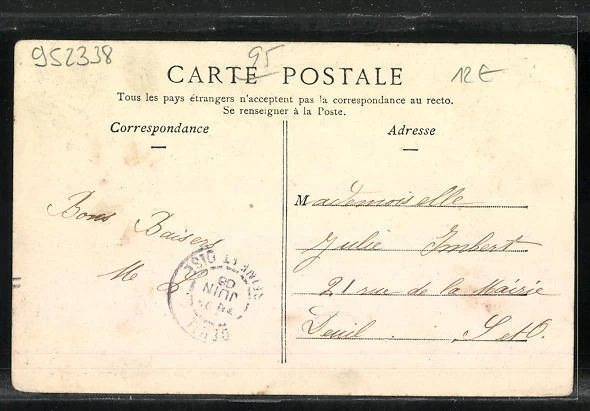 952338
95
12€
CARTE POSTALE
Tous les pays étrangers n'acceptent pas la correspondance au recto.
Se renseigner à la Poste.
Correspondance
Adresse
Bons Baisers
M
Mademoiselle
Julie Imbert
21 rue de la Mairie
Deuil . S et O.
SEINE ET OISE
JUIN
08
DEUIL